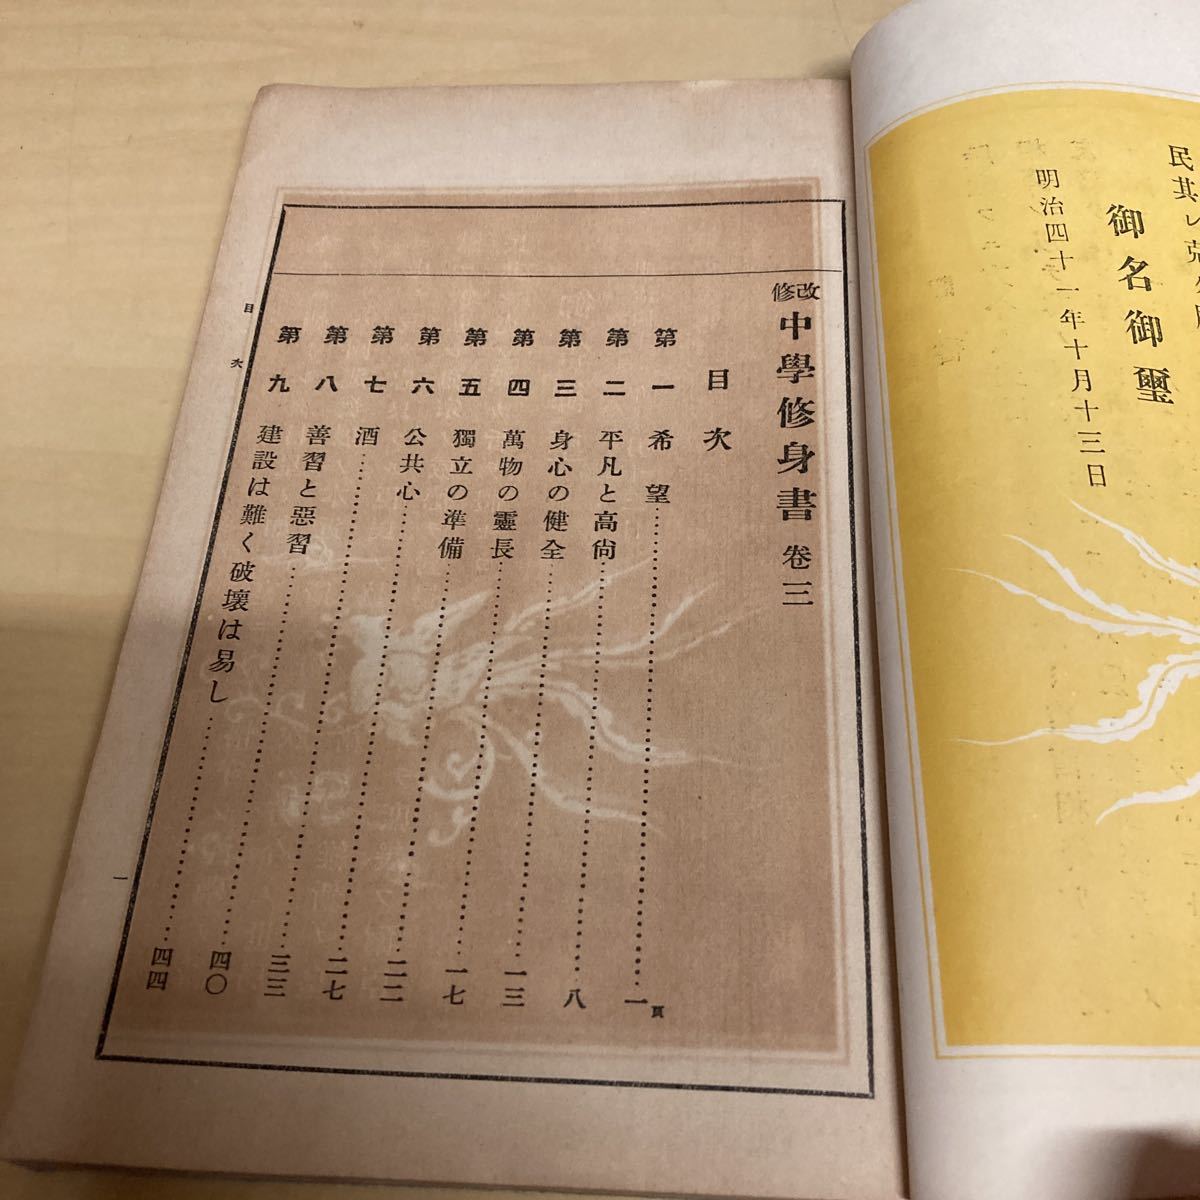 民其レ克ク
御名御璽
明治四十一年十月十三日
改修 中學修身書 卷三
目次
第一 希望……一頁
第二 平凡と高尙……八
第三 身心の健全……一三
第四 萬物の靈長……一七
第五 獨立の準備……二二
第六 公共心……二七
第七 酒……三三
第八 善習と惡習……四〇
第九 建設は難く破壞は易し……四四
目次
一